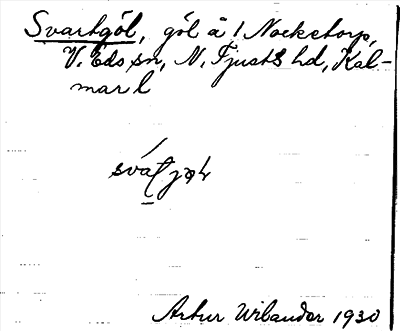 Svartgöl, göl å 1 Nocketorp,
V. Eds sn, N. Tjusts hd, Kal-
mar l
Artur Wilander 1930